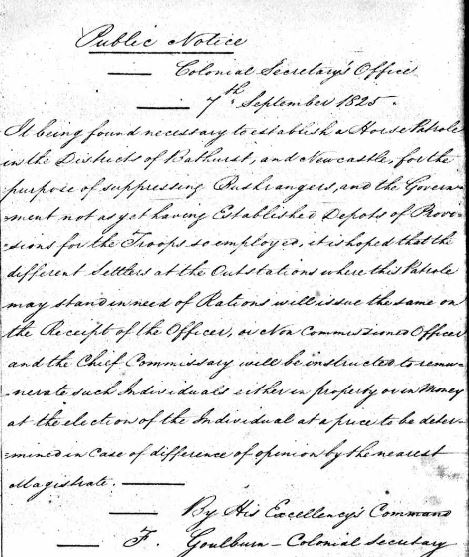 Public Notice
Colonial Secretary's Office
7th September 1825.
It being found necessary to establish a Horse Patrole
in the Districts of Bathurst, and Newcastle, for the
purpose of suppressing Bushrangers, and the Govern-
-ment not as yet having Established Depots of Provi-
-sions for the Troops so employed, it is hoped that the
different Settlers at the Outstations where this Patrole
may stand in need of Rations will issue the same on
the Receipt of the Officer, or Non Commissioned Officer
and the Chief Commissary will be instructed to remu-
-nerate such Individuals either in property or in Money
at the election of the Individual at a price to be deter-
-mined in case of difference of opinion by the nearest
Magistrate.
By His Excellency's Command
F. Goulburn - Colonial Secretary